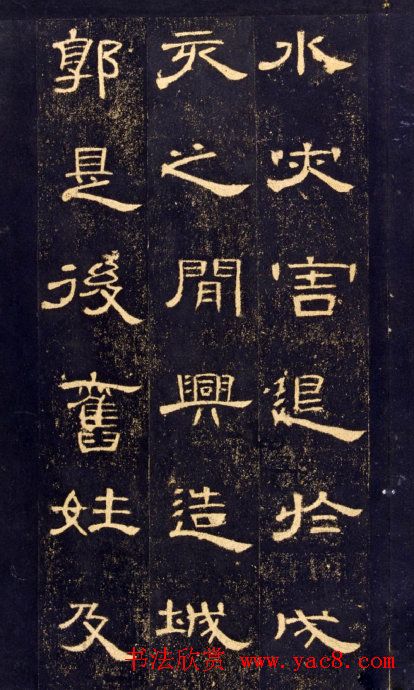 水灾害退於戌
亥之間興造城
郭是後舊姓及
书法欣赏 www.yac8.com